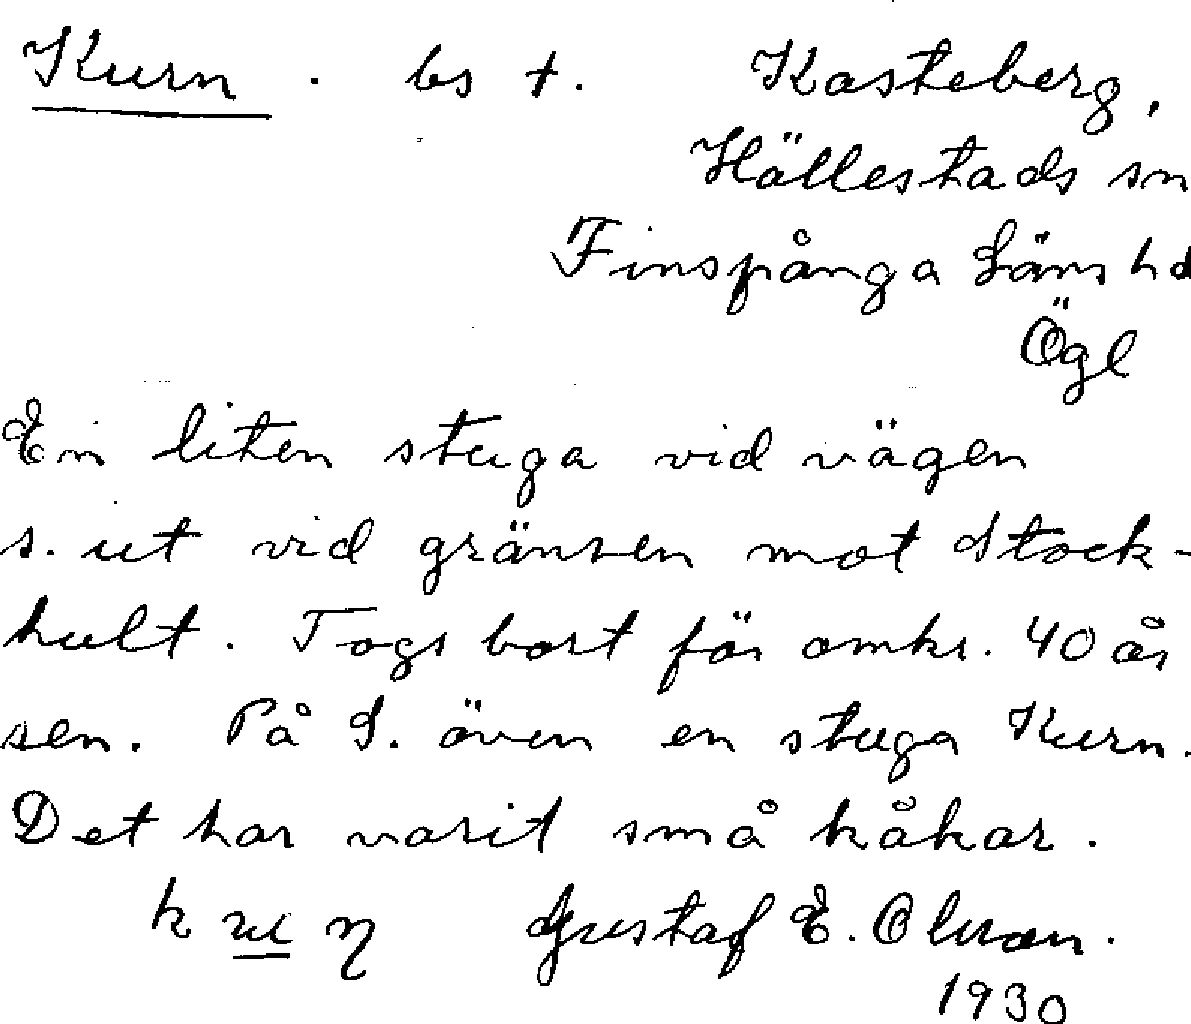 Kurn . bs †. Kasteberg,
Hällestads sn
Finspånga Läns hd
Ögl
En liten stuga vid vägen
s. ut vid gränsen mot Stock-
hult. Togs bort för omkr. 40 år
sen. På S. även en stuga Kurn.
Det har varit små kåkar.
k u η Gustaf E. Olsson.
1930